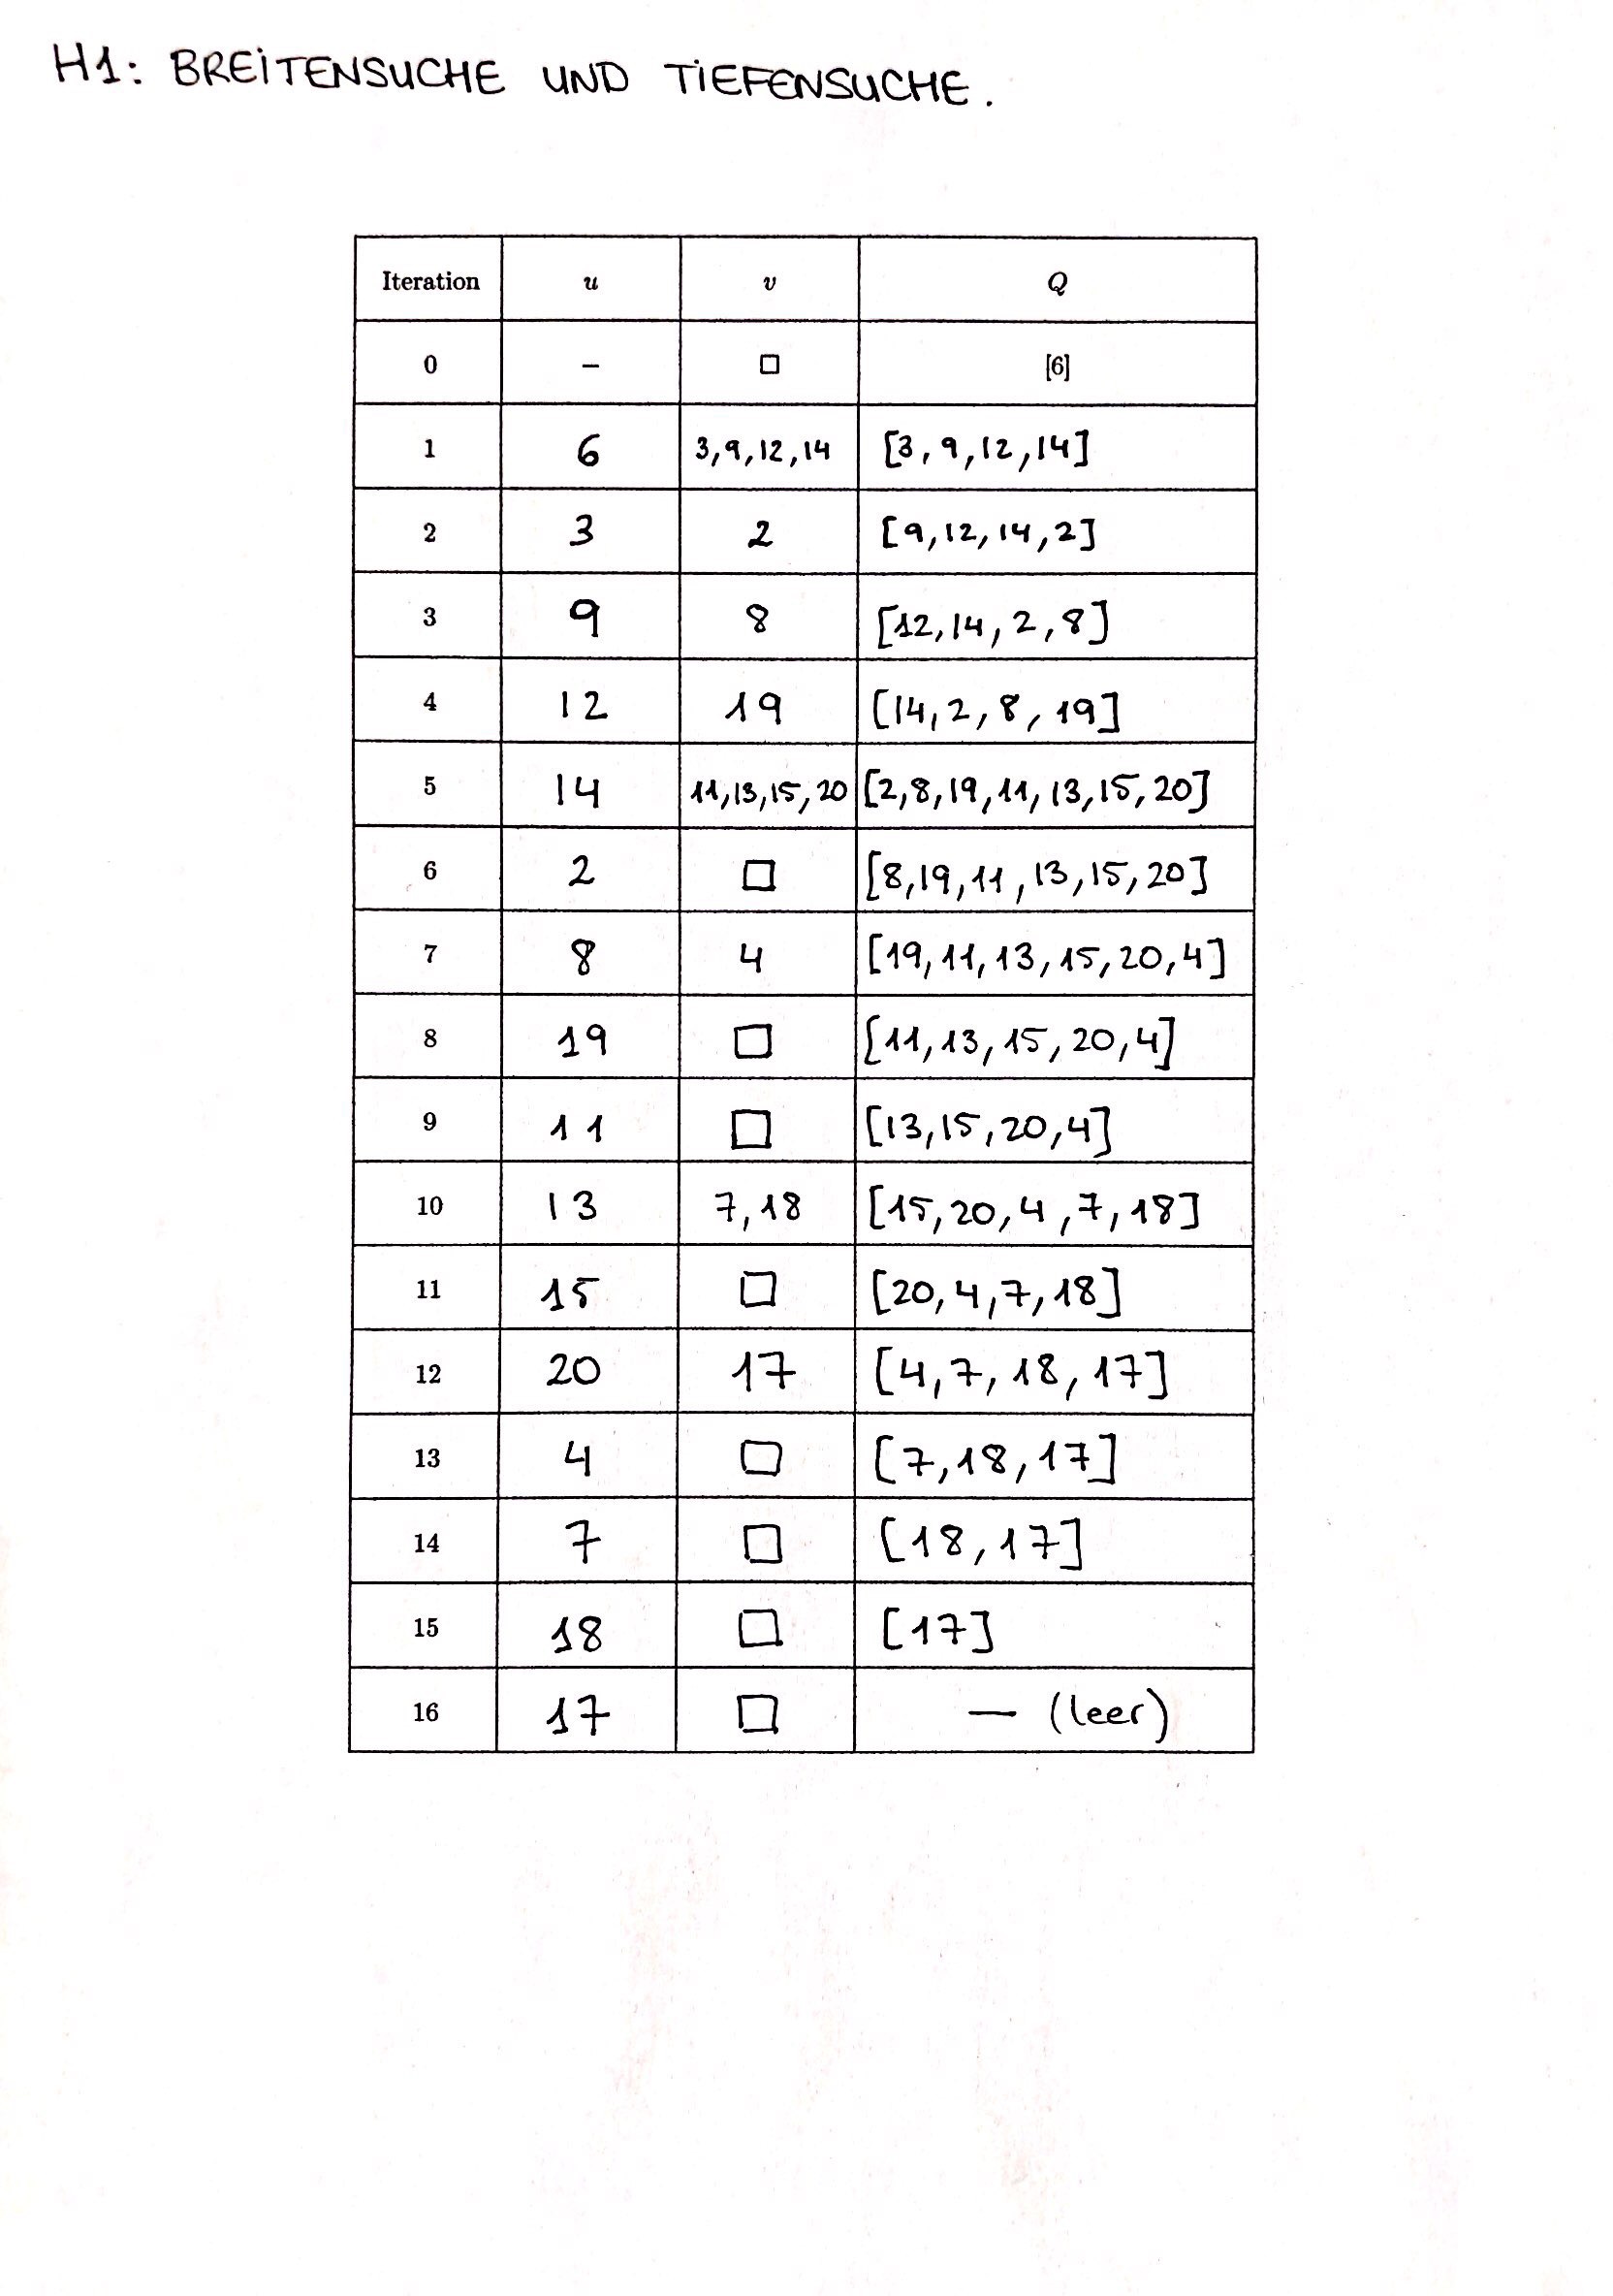 H1: BREITENSUCHE UND TIEFENSUCHE.
Iteration u v Q
0 – □ [6]
1 6 3,9,12,14 [3,9,12,14]
2 3 2 [9,12,14,2]
3 9 8 [12,14,2,8]
4 12 19 [14,2,8,19]
5 14 11,13,15,20 [2,8,19,11,13,15,20]
6 2 □ [8,19,11,13,15,20]
7 8 4 [19,11,13,15,20,4]
8 19 □ [11,13,15,20,4]
9 11 □ [13,15,20,4]
10 13 7,18 [15,20,4,7,18]
11 15 □ [20,4,7,18]
12 20 17 [4,7,18,17]
13 4 □ [7,18,17]
14 7 □ [18,17]
15 18 □ [17]
16 17 □ — (leer)